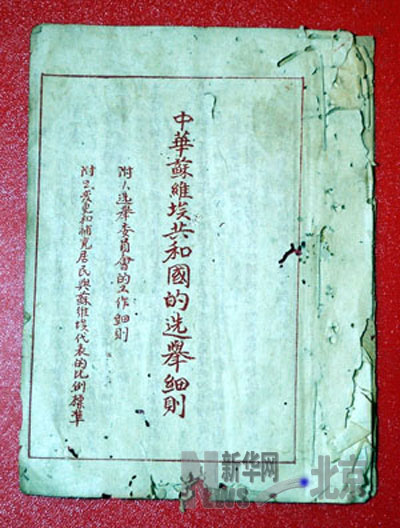 中華蘇維埃共和國的选舉细則
附1选舉委員會的工作细則
附2变更和補充居民與蘇維埃代表的比例標準
新华网
NEWS
北京